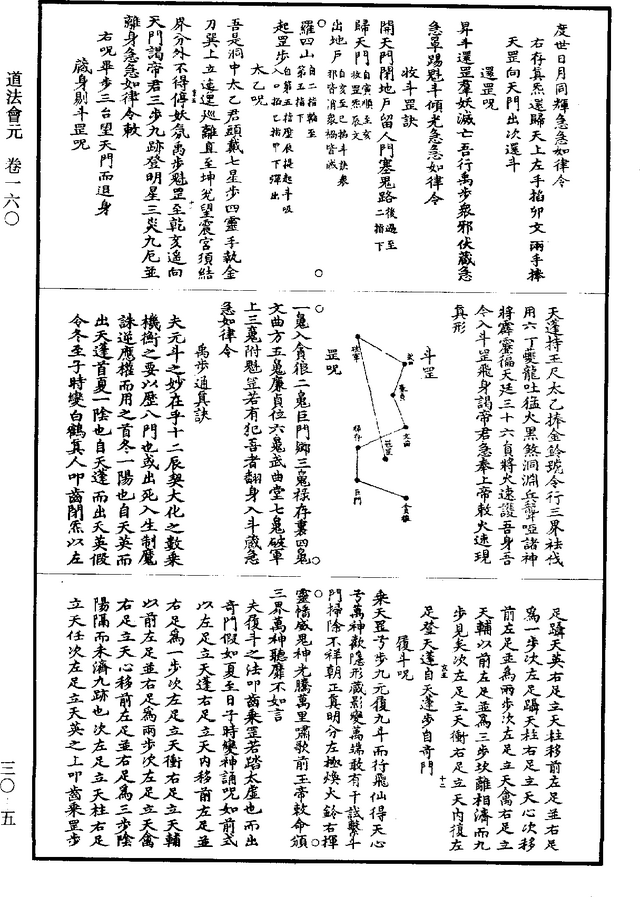 度世日月同輝急急如律令
右存真炁還歸天上左手掐卯文兩手捧
天罡向天門出次還斗
還罡呪
昇斗還罡羣妖滅亡吾行禹步衆邪伏藏急
急罩踢魁斗傾光急急如律令
收斗罡訣
開天門閉地戶留人門塞鬼路後過至二指下
歸天門自寅順至亥收罡炁辰文
出地戶自亥至巳掐斗訣奏那皆消衆禍皆滅
羅四山自二指輪至第五指
起罡步自第五指歷辰提起斗吸入口掐乙指甲下彈出
太乙呪
吾是洞中太乙君頭戴七星步四靈手執金
刀巽上立遠運巡離直至坤兌望震宮須結
界分外不得停妖氛禹步魁罡至乾亥遥向
天門謁帝君三步九跡登明星三災九厄並
離身急急如律令敕
右呪畢步三台望天門而退身
藏身剔斗罡呪
天蓬持王尺太乙捧金鈴號令行三界祛伐
用六丁雙龍吐猛火黑煞洞淵兵聲啞諸神
將霹靂徧天廷三十六貞將火速護吾身吾
今入斗罡飛身謁帝君急奉上帝敕火速現
真形
斗罡
破軍
武曲
廉貞
文曲
祿存
巨門
貪狼
罡呪
一鬼入貪狼二鬼巨門鄉三鬼祿存裏四鬼
文曲方五鬼廉貞位六鬼武曲堂七鬼破軍
上三鬼附魁罡若有犯吾者翻身入斗藏急
急如律令
禹步通真訣
夫元斗之妙在乎十二辰契大化之數乘
機衡之要以歷八門也或出死入生制魔
誅逆應權而用之首冬一陽也自天英而
出天蓬首夏一陰也自天蓬而出天英假
令冬至子時變白鶴真人叩齒閉炁以左
足躡天英右足立天柱移前左足並右足
爲一步次左足躡天柱右足立天心次移
前左足並爲兩步次左足立天禽右足立
天輔以前左足並爲三步坎離相濟而九
步見矣次左足立天衝右足立天內復左
足登天蓬自天蓬步自奇門
履斗呪
乘天罡兮步九元履九斗而行飛仙得天心
兮萬神歡隱形藏影變萬端敢有干試繫斗
門掃除不祥朝正真明分左極煥火鈴右揮
靈幡威鬼神光騰萬里嘯歌前玉帝敕命頒
三界萬神聽靡不如言
夫履斗之法叩齒乘罡若踏太虛也而出
奇門假如夏至日子時變神誦呪如前式
以左足立天蓬右足立天內移前左足並
右足爲一步次左足立天衝右足立天輔
以前左足並右足爲兩步次左足立天禽
右足立天心移前左足並右足爲三步陰
陽隔而未濟九跡也次左足立天柱右足
立天任次左足立天英之上叩齒乘罡步
道法會元 卷一六〇
三〇·五